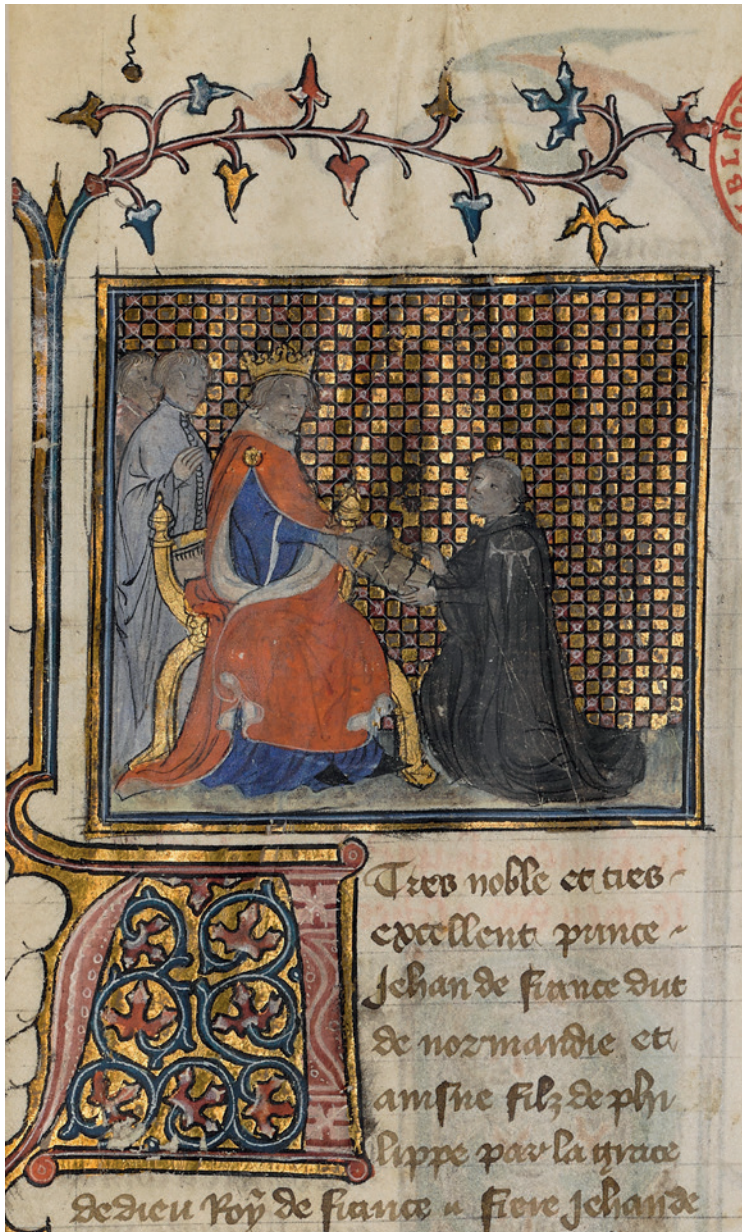 A
Tres noble et tres
excellent prince
Jehan de france duc
de normandie et
ainsne filz de phi
lippe par la grace
de dieu Roy de france frere Jehan de
BLIO